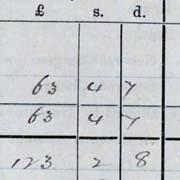 £ s. d.
63 4 7
63 4 7
123 2 8